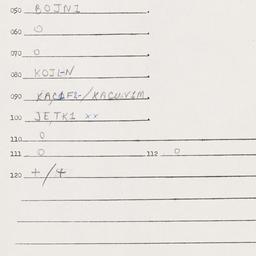 050 BOJNI
060 O
070 O
080 KOJL-N
090 KAC1F2-/KACUV1M
100 JE,TK1 xx
110 O
111 O 112 O
120 +/4